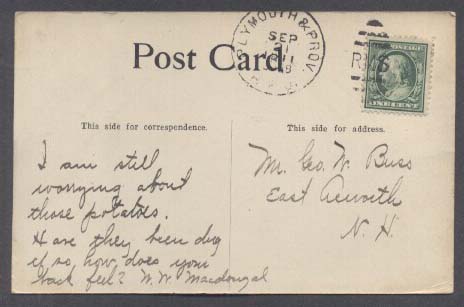 PLYMOUTH & PROV.
SEP
21
R.P.O.
RMS
Post Card
ONE CENT
This side for correspondence.
This side for address.
I am still
worrying about
those potatoes.
Have they been dug
if so, how does your
back feel? W. W. Macdougal
Mr. Geo. W. Buss
East Acworth
N. H.